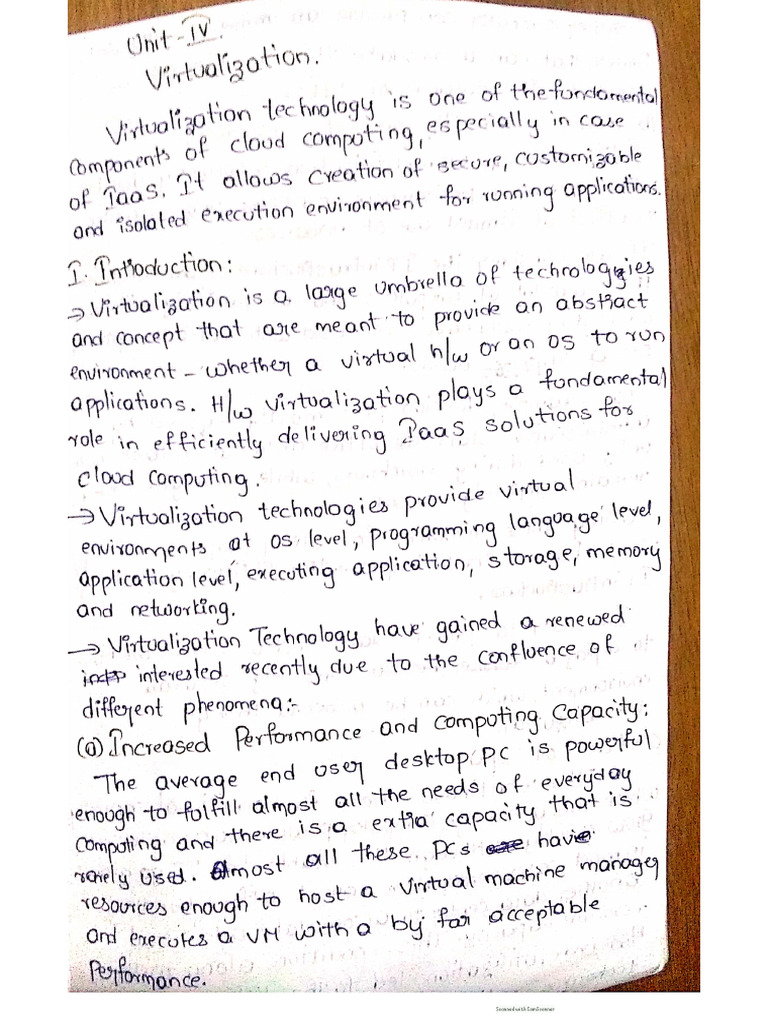 Unit-IV.
Virtualization.
Virtualization technology is one of the fundamental
components of cloud computing, especially in case
of IaaS. It allows creation of secure, customizable
and isolated execution environment for running applications.
I. Introduction:
→ Virtualization is a large umbrella of technologies
and concept that are meant to provide an abstract
environment - whether a virtual h/w or an os to run
applications. H/w virtualization plays a fundamental
role in efficiently delivering IaaS solutions for
cloud computing.
→ Virtualization technologies provide virtual
environments at os level, programming language level,
application level, executing application, storage, memory
and networking.
→ Virtualization Technology have gained a renewed
interested recently due to the confluence of
different phenomena:-
(a) Increased Performance and Computing Capacity:
The average end user desktop PC is powerful
enough to fulfill almost all the needs of everyday
computing and there is a extra capacity that is
rarely used. Almost all these PCs have
resources enough to host a virtual machine manager
and executes a VM with a by far acceptable
Performance.
Scanned with CamScanner